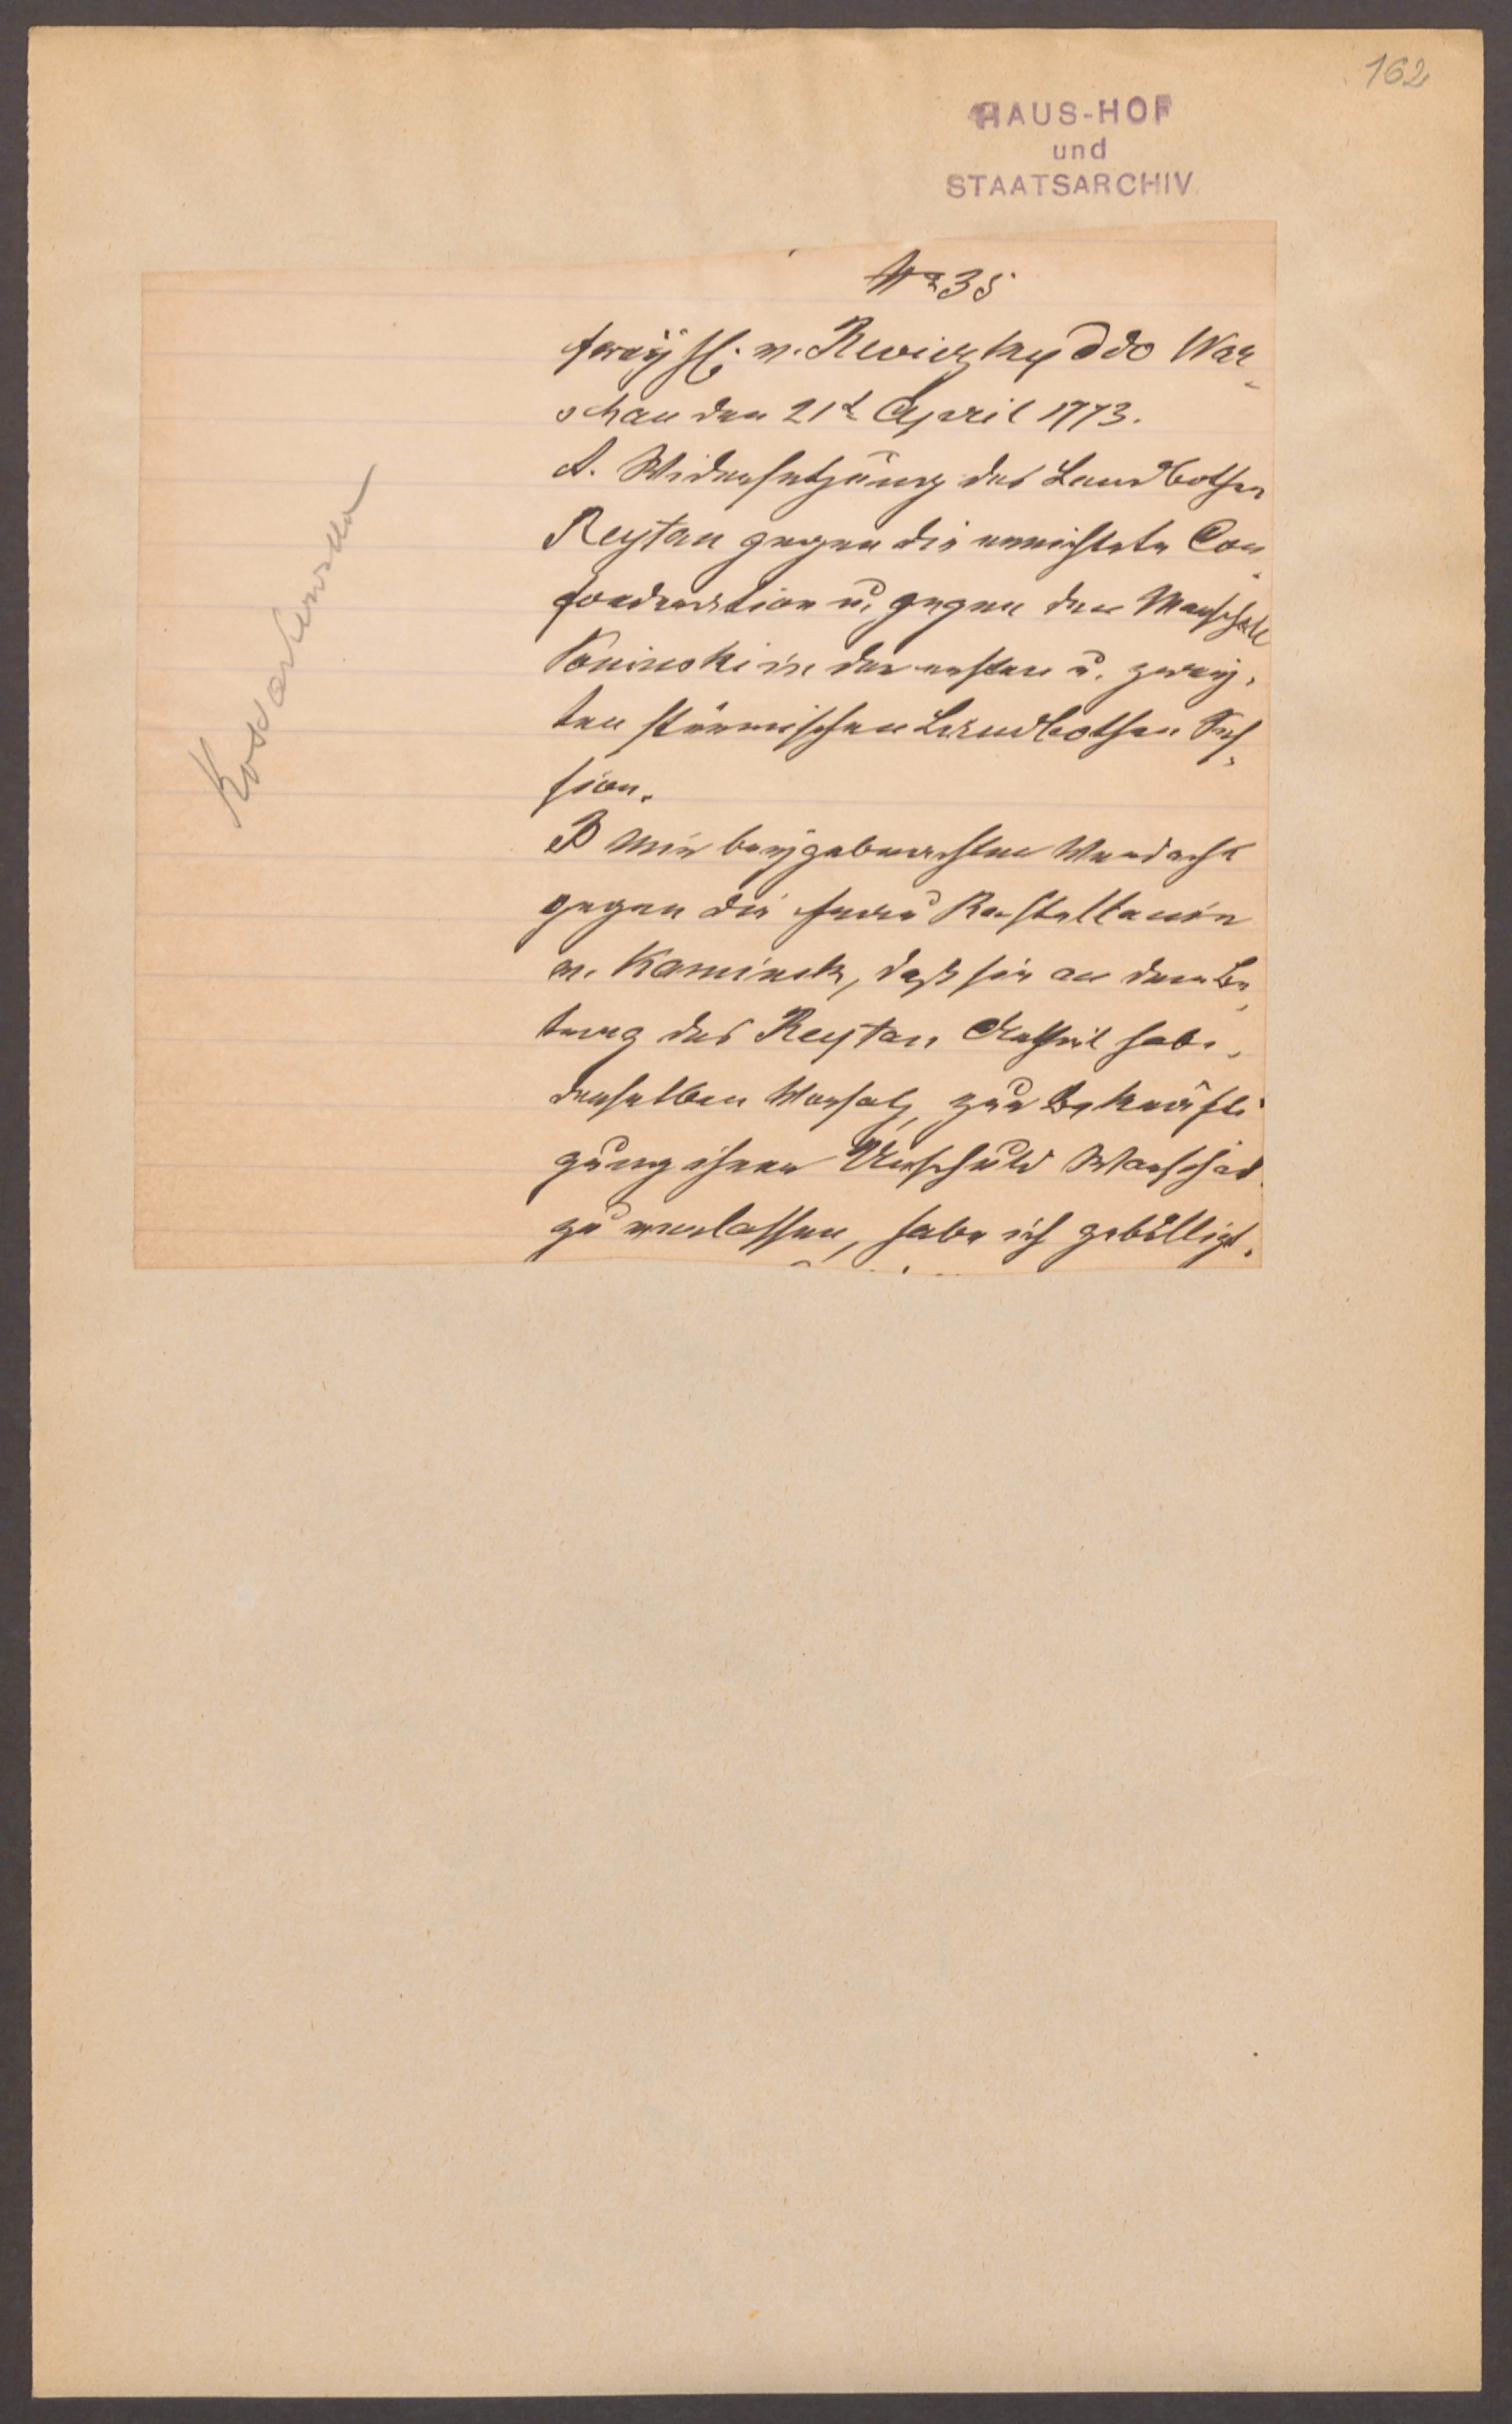 162
HAUS-HOF
und
STAATSARCHIV
Nr 35
Freyh. v. Rewiczky ddo War-
schau den 21t April 1773.
A. Widersetzung des Landbothen
Reytan gegen die errichtete Con-
foederation u. gegen den Marschall
Poninski in der ersten u. zwey-
ten stürmischen Landbothen Ses-
sion.
B Mir beygebrachten Verdacht
gegen die Frau Kastellanin
v. Kaminsk, daß sie an dem Be-
trag des Reytan Antheil habe,
derselben Vorsatz, zur Bekräfti
gung ihrer Unschuld Warschau
zu verlassen, habe ich gebilligt.
Kossakowska